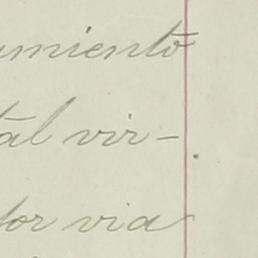 umiento
tal vir-
tor via